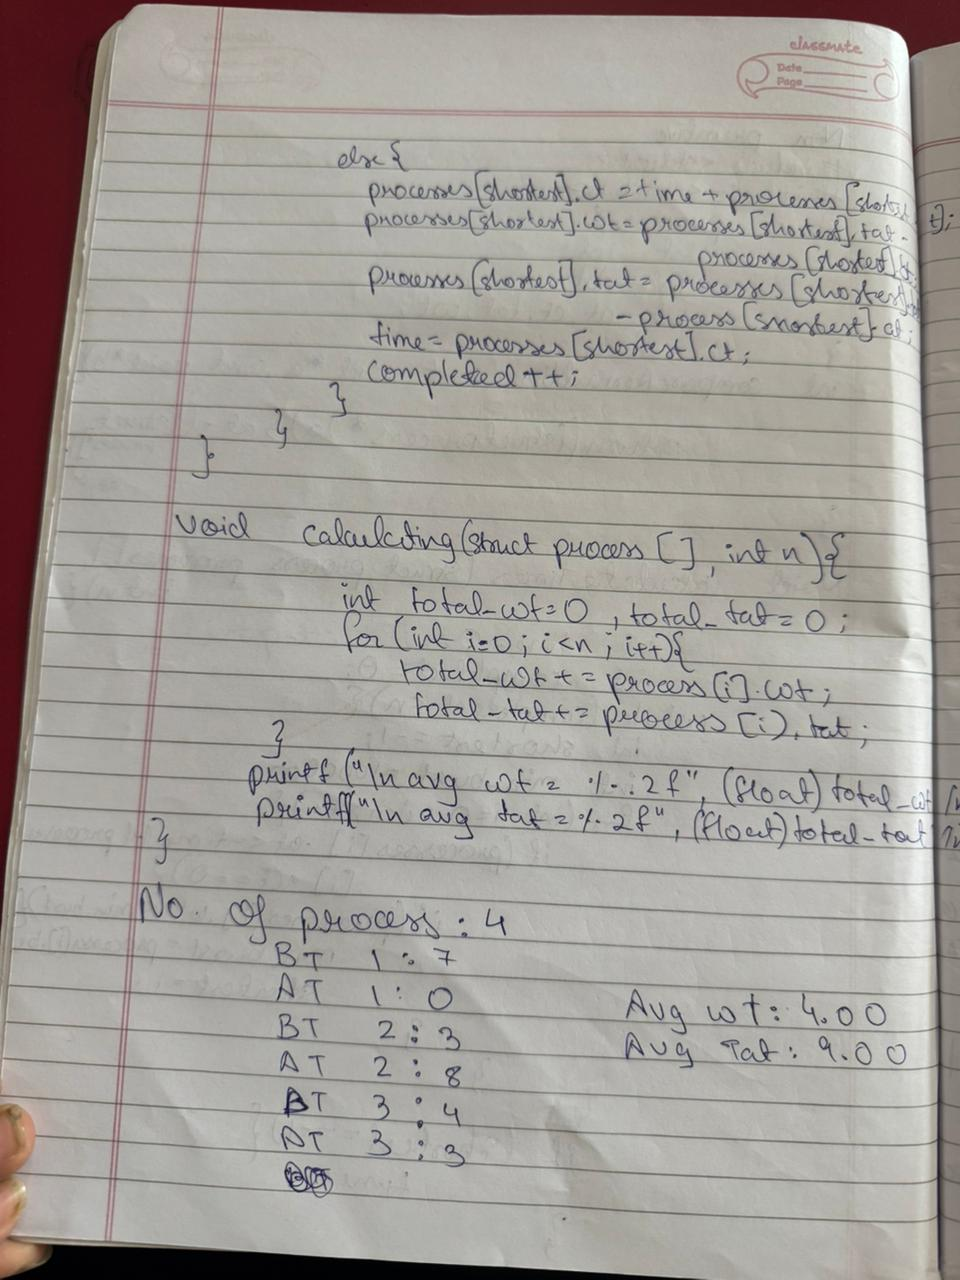 classmate
Date
Page
else {
processes[shortest].ct = time + processes [shortest
processes[shortest].wt = processes [shortest].tat -
t);
processes [shortest]
processes [shortest].tat = processes [shortest]
- process [shortest].at;
time = processes [shortest].ct;
completed ++;
}
}
}
void calculating (struct process [ ], int n) {
int total_wt = 0, total_tat = 0;
for (int i=0; i<n; i++) {
total_wt += process [i].wt;
total_tat += process [i].tat;
}
printf ("\n avg wt = %.2f", (float) total_wt
printf("\n avg tat = %.2f", (float) total_tat
}
No. Of process : 4
BT 1 : 7
AT 1 : 0
BT 2 : 3
AT 2 : 8
BT 3 : 4
AT 3 : 3
Avg wt : 4.00
Avg Tat : 9.00